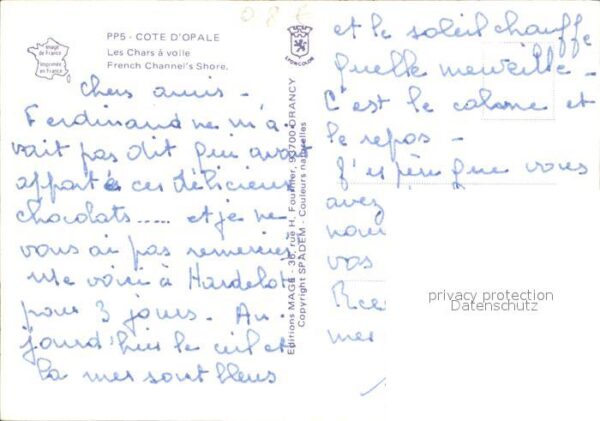 PP5 - COTE D'OPALE
Les Chars à voile
French Channel's Shore.
Image de France
Imprimée en France
LYONCOLOR
Editions MAGE - 36, rue H. Fournier, 93700 DRANCY
Copyright SPADEM - Couleurs naturelles
Chers amis -
Ferdinand ne m'a-
vait pas dit qu'on avait
apporté ces délicieux
chocolats..... et je ne
vous ai pas remerciés
Me voici à Hardelot
pour 3 jours. Au-
jourd'hui le ciel et
la mer sont bleus
et le soleil chauffe
quelle merveille -
C'est le calme et
le repos -
J'espère que vous
avez
vos
mer
privacy protection
Datenschutz